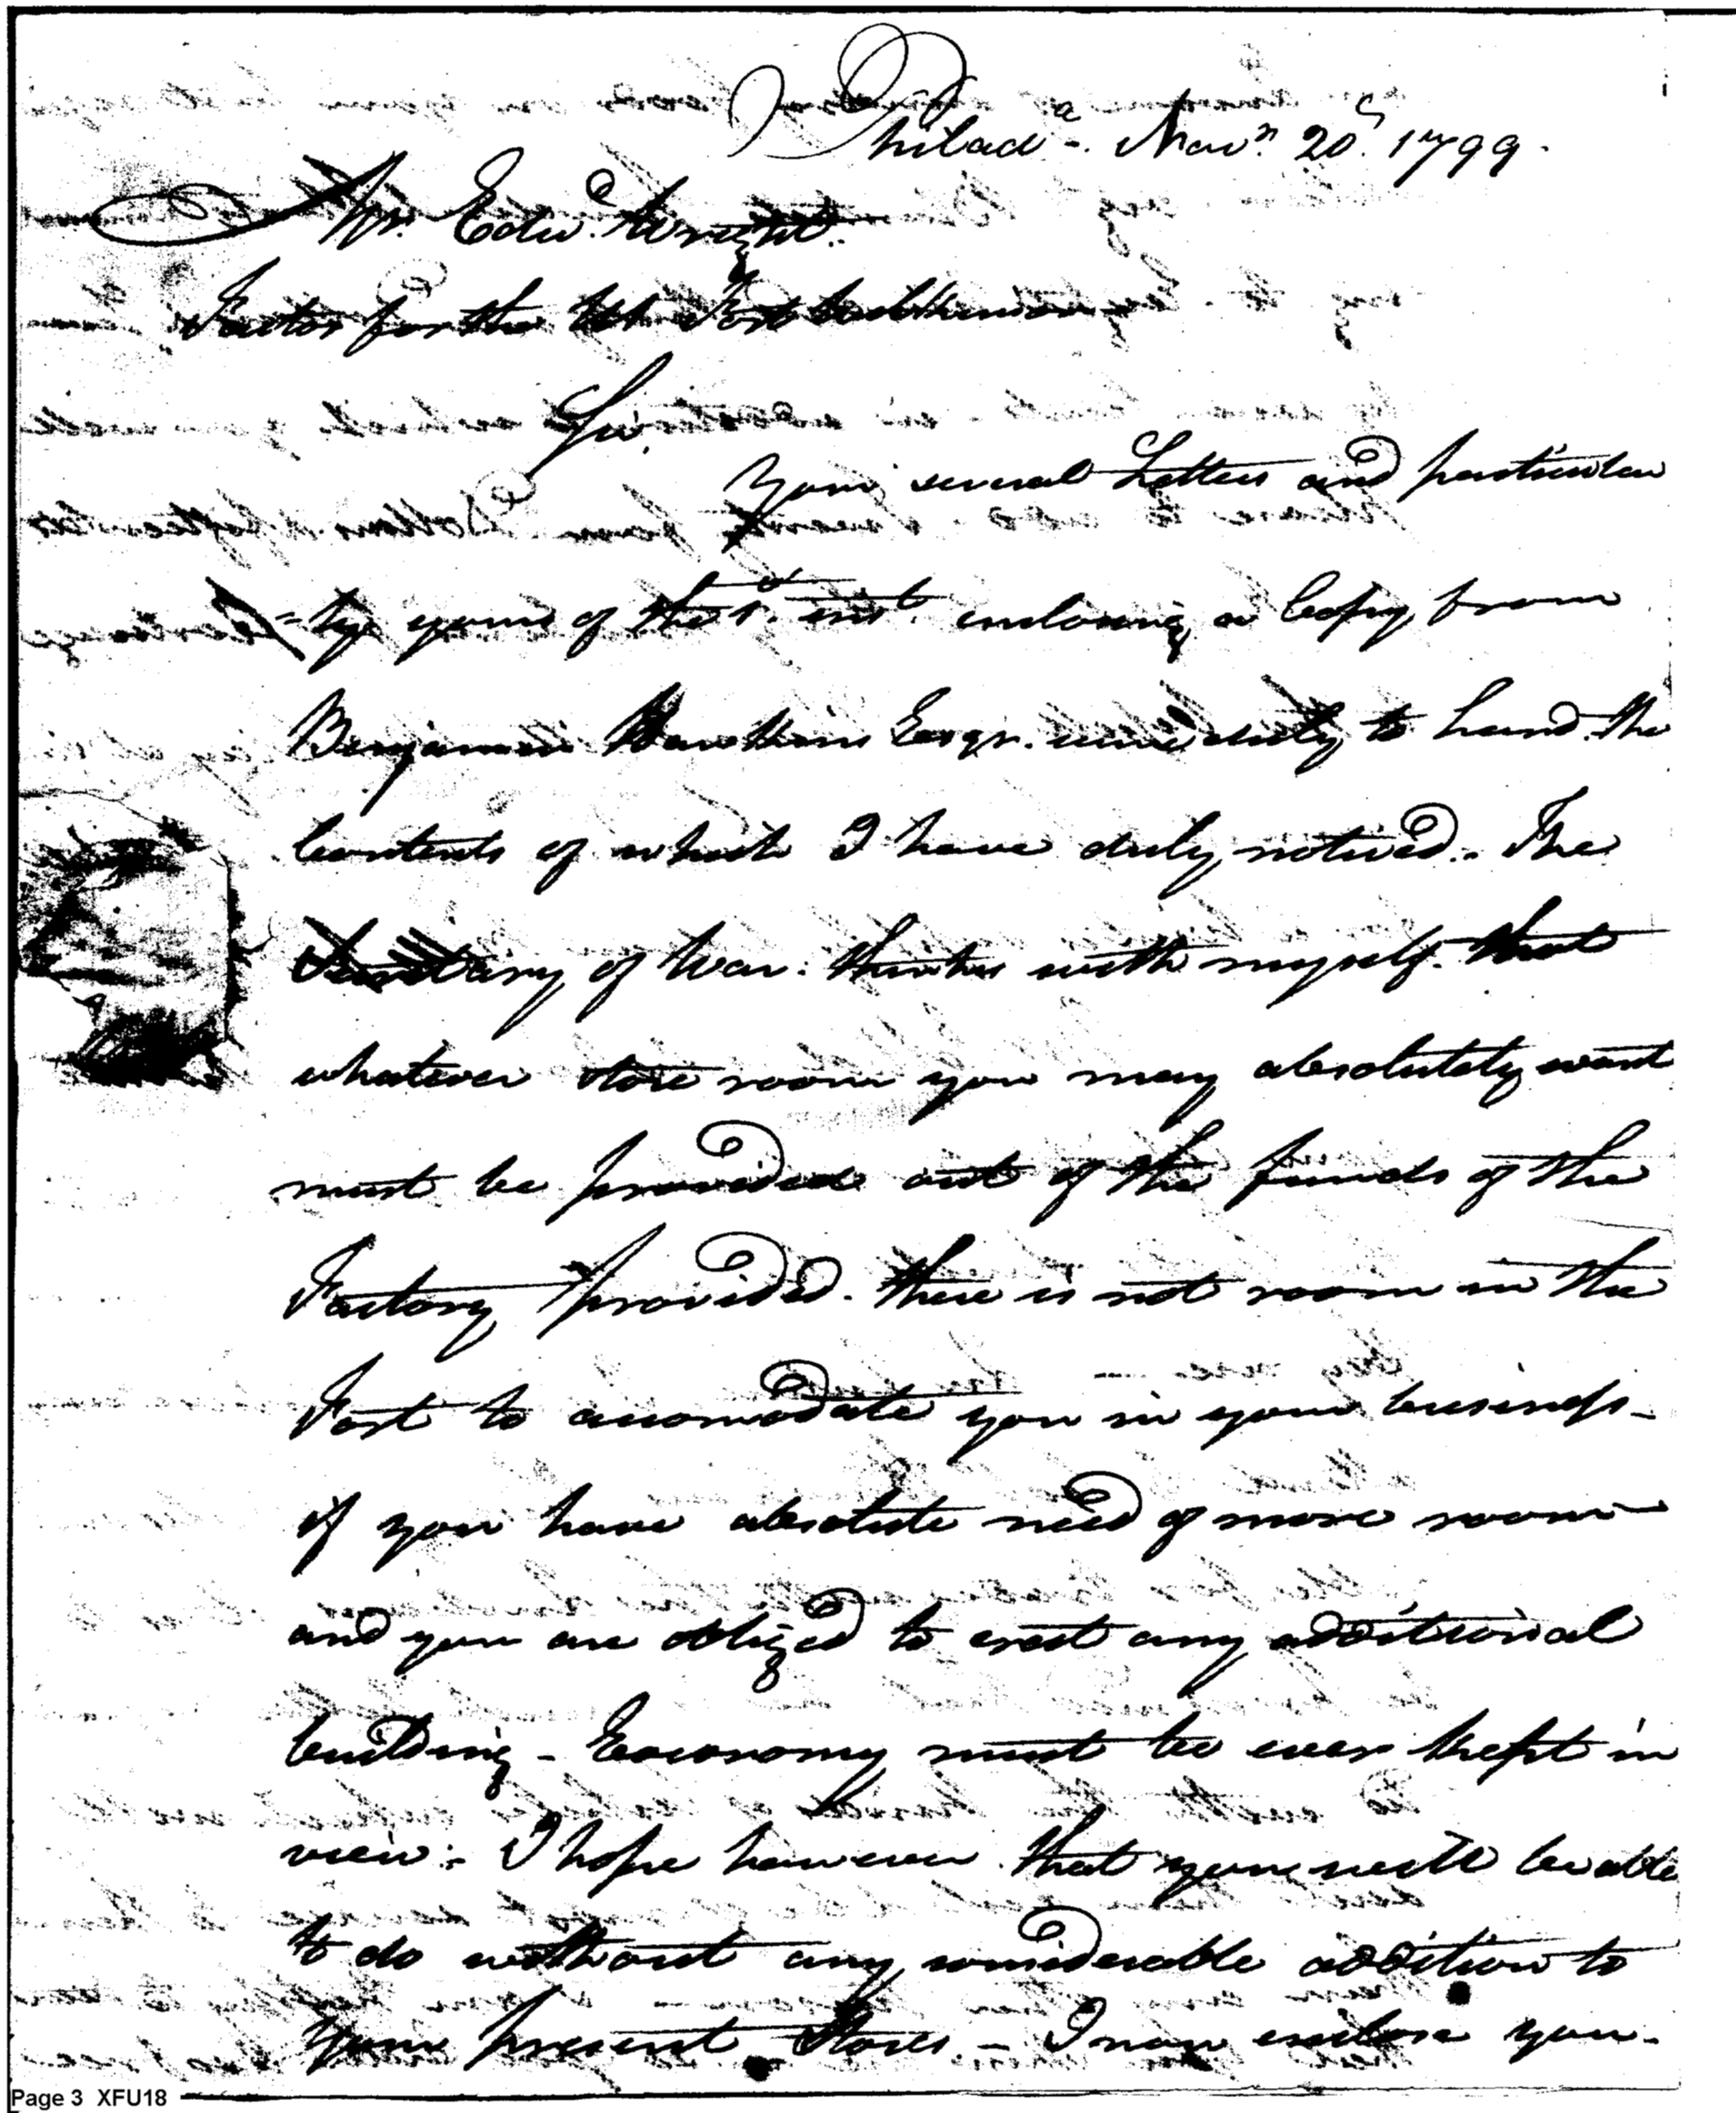 Philada. Novr. 20th 1799.
Mr. Edwd. Wright.
Factor for the US Fort Wilkinson
Sir,
Your several Letters and particular
=ly yours of the 1st. inst. enclosing a Copy from
Benjamin Hawkins Esqr. came duly to hand the
Contents of which I have duly noticed. The
Secretary of War. thinks with myself that
whatever store room you may absolutely want
must be provided out of the funds of the
Factory provided. there is not room in the
Fort to accomodate you in your business_
if you have absolute need of more room
and you are obliged to erect any additional
building - Eoconomy must be ever kept in
view: I hope however that you will be able
to do without any considerable addition to
your present Stores. - I now enclose you.
Page 3 XFU18